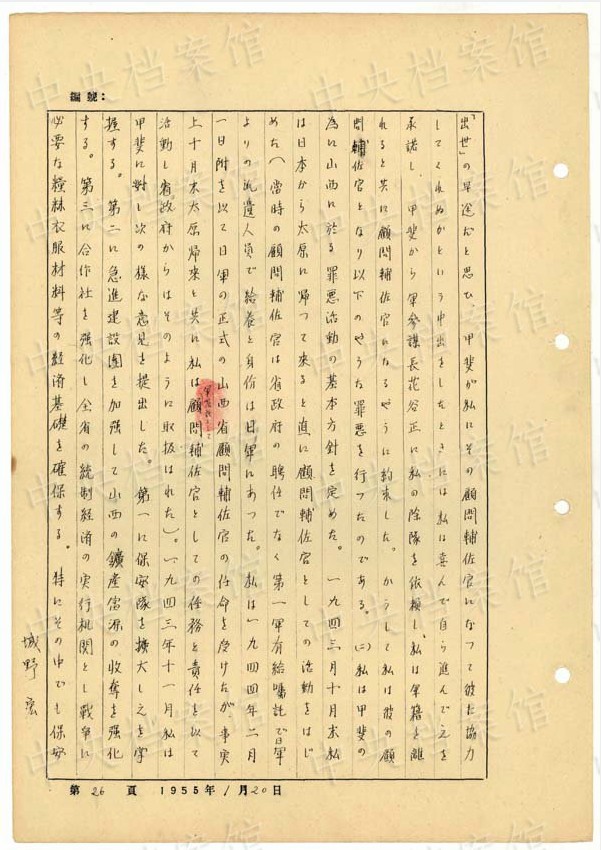 編號：
「出世」の早道だと思ひ、甲斐が私にその顧問輔佐官になつて彼に協力
してくれぬかという申出をしたときには私は喜んで自ら進んで之を
承諾し、甲斐から軍参謀長花谷正に私の除隊を依頼し、私は軍籍を離
れると共に顧問輔佐官になるやうに約束した。かうして私は彼の顧
問輔佐官となり以下のやうな罪悪を行つたのである。(二)私は甲斐の
為に山西に於る罪悪活動の基本方針を定めた。一九四三年十月末私
は日本から太原に帰つて来ると直に顧問輔佐官としての活動をはじ
めた(当時の顧問輔佐官は省政府の聘任でなく第一軍有給嘱託で日軍
よりの派遣人員で給養と身份は日軍にあつた。私は一九四四年二月
一日附を以て日軍の正式の山西省顧問輔佐官の任命を受けたが、事実
上十月末太原帰来と共に私は顧問輔佐官としての任務と責任を以て
活動し省政府からはそのように取扱はれた)。一九四三年十一月私は
甲斐に対し次の様な意見を提出した。第一に保安隊を拡大し之を掌
握する。第二に急進建設団を加強して山西の鑛産富源の收奪を強化
する。第三に合作社を強化し全省の統制経済の実行机関とし戦争に
必要な糧秣衣服材料等の経済基礎を確保する。特にその中でも保安
城野宏
第26頁 1955年1月20日
中央档案馆